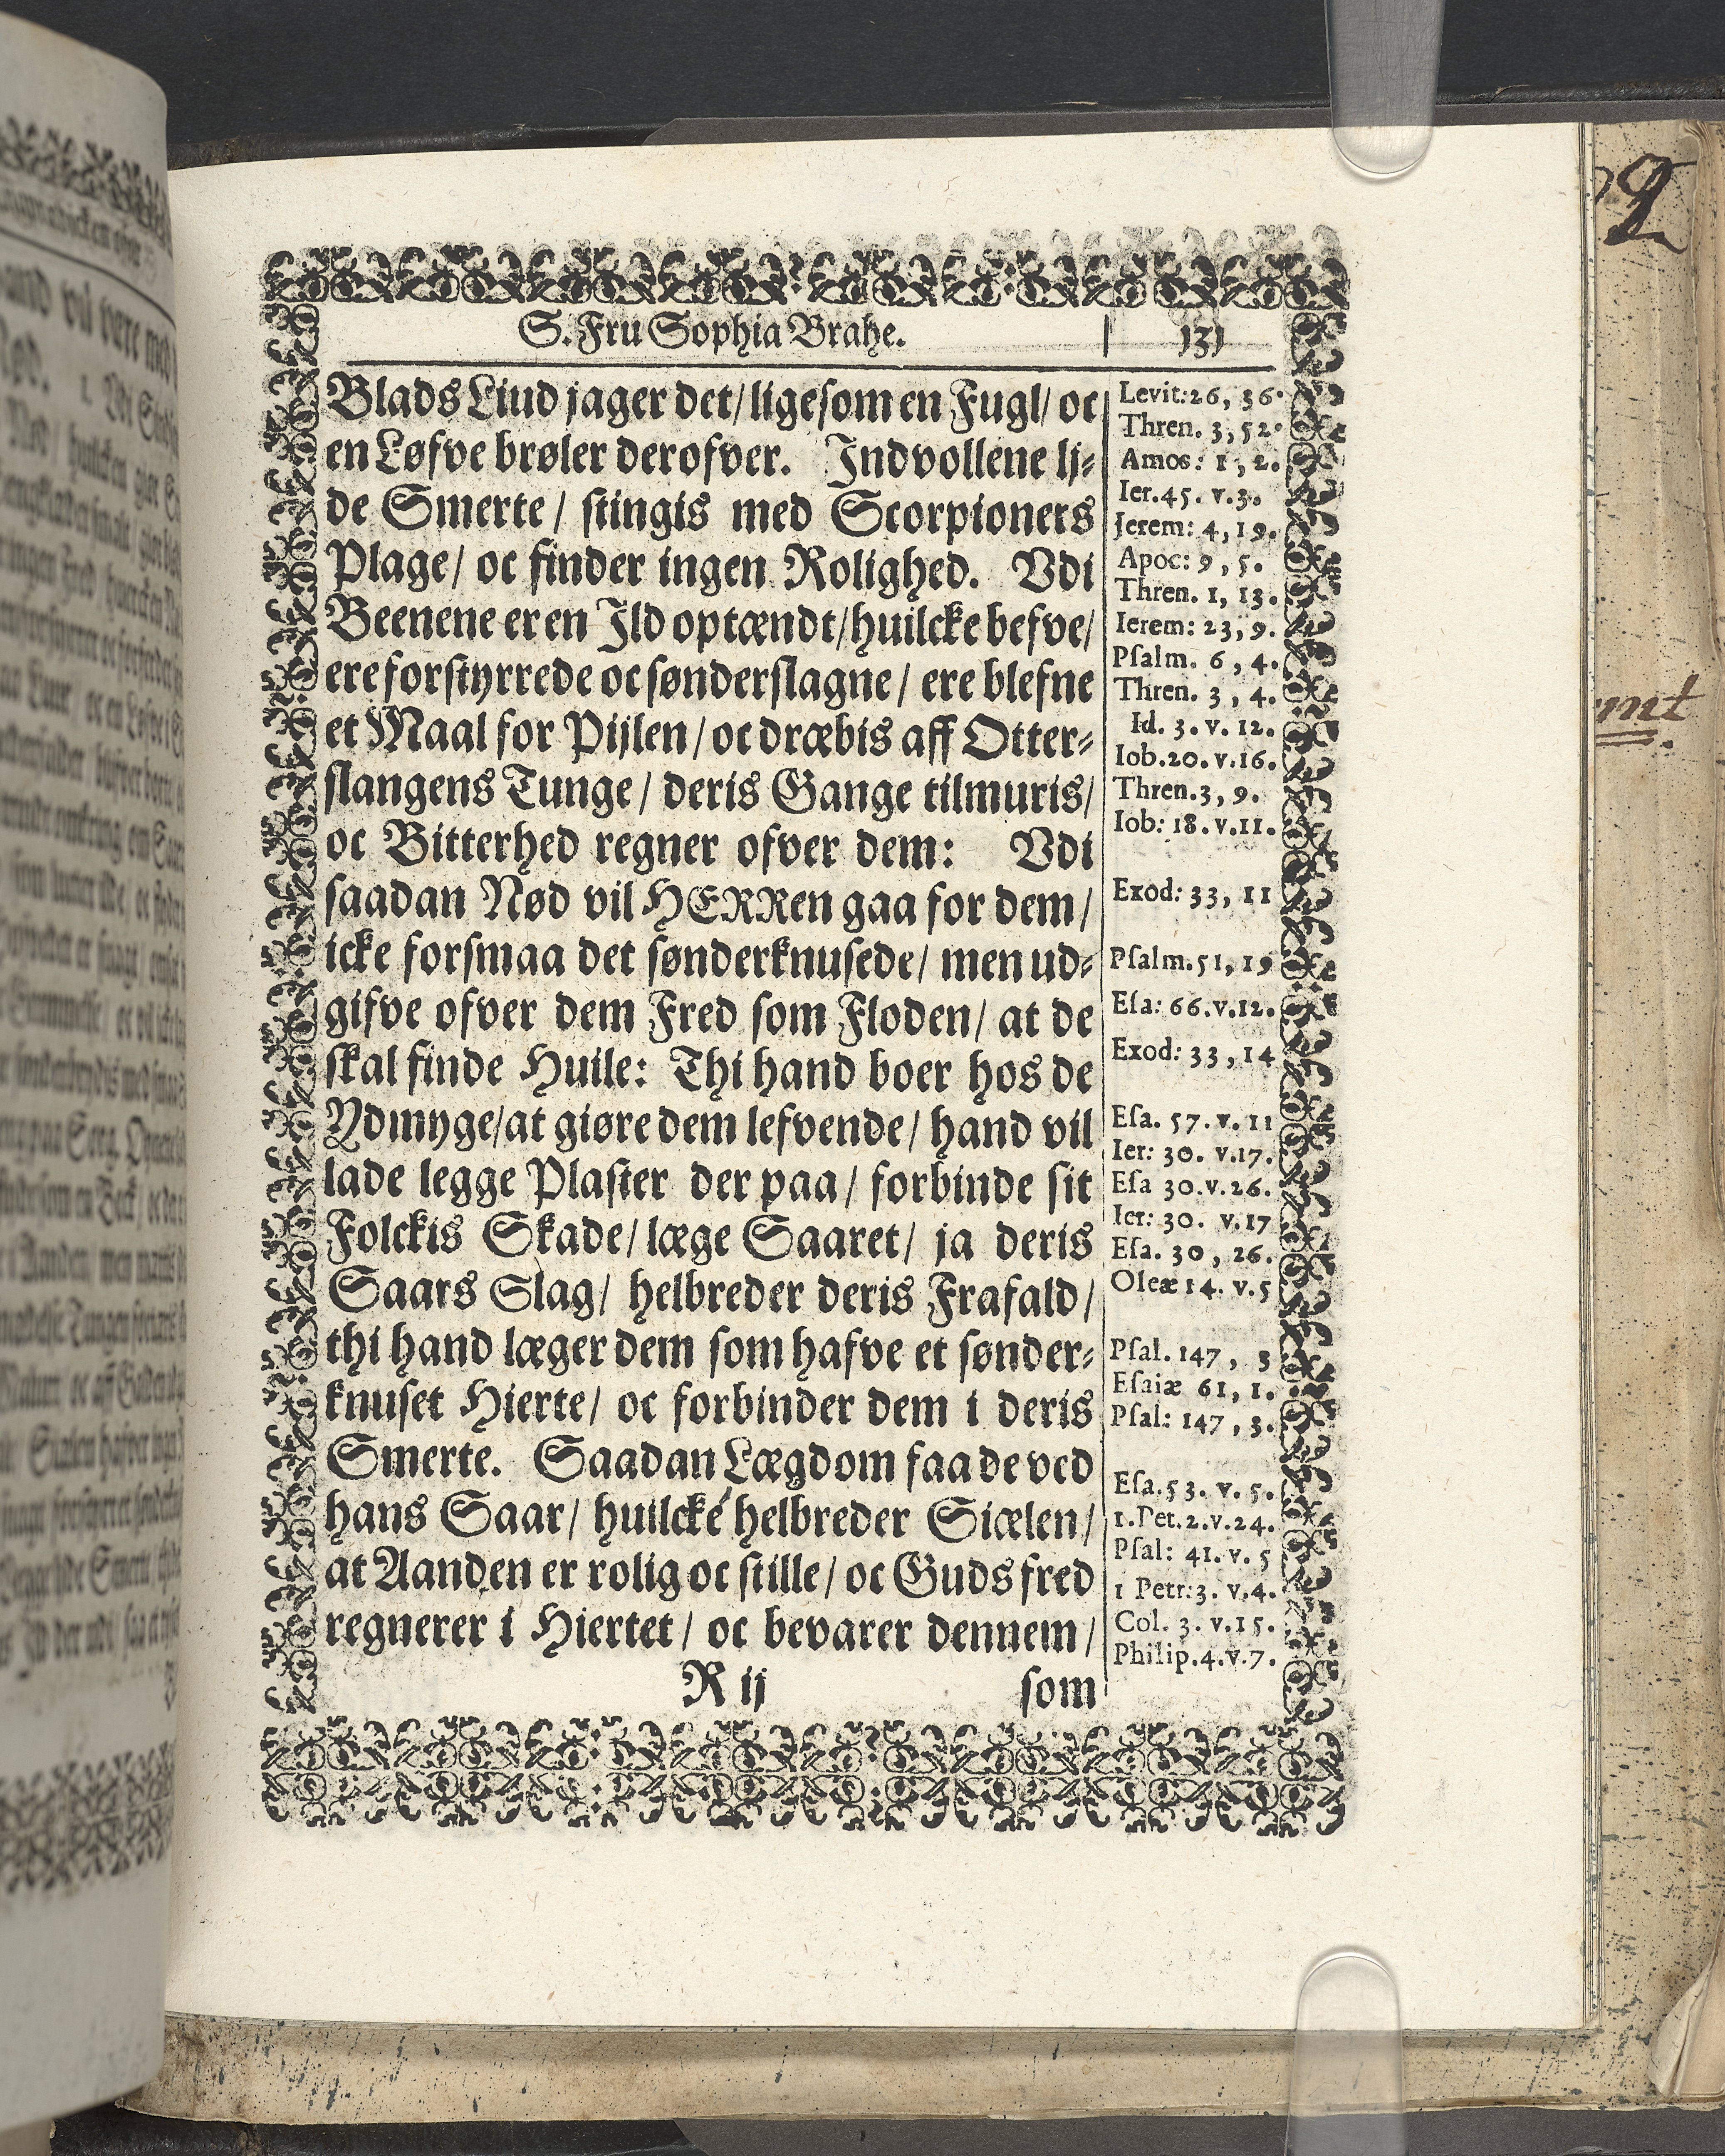 S. Fru Sophia Brahe. 131
Blads Liud jager det/ ligesom en Fugl/ oc
en Løfve brøler derofver. Indvollene lj⸗
de Smerte/ stingis med Scorpioners
Plage/ oc finder ingen Rolighed. Vdi
Beenene er en Ild optændt/ huilcke befve/
ere forstyrrede oc sønderslagne/ ere blefne
et Maal for Pijlen/ oc dræbis aff Otter⸗
slangens Tunge/ deris Gange tilmuris/
oc Bitterhed regner ofver dem: Vdi
saadan Nød vil HERRen gaa for dem/
icke forsmaa det sønderknusede/ men ud⸗
gifve ofver dem Fred som Floden/ at de
skal finde Huile: Thi hand boer hos de
Ydmyge/ at giøre dem lefvende/ hand vil
lade legge Plaster der paa/ forbinde sit
Folckis Skade/ læge Saaret/ ja deris
Saars Slag/ helbreder deris Frafald/
thi hand læger dem som hafve et sønder⸗
knuset Hierte/ oc forbinder dem i deris
Smerte. Saadan Lægdom faa de ved
hans Saar/ huilcke helbreder Siælen/
at Aanden er rolig oc stille/ oc Guds fred
regnerer i Hiertet/ oc bevarer dennem/
R ij som
Levit: 26, 36.
Thren. 3, 52.
Amos: 1, 2.
Ier. 45. v. 3.
Jerem: 4, 19.
Apoc: 9, 5.
Thren. 1, 13.
Ierem: 23, 9.
Psalm. 6, 4.
Thren. 3, 4.
Id. 3. v. 12.
Iob. 20. v. 16.
Thren. 3, 9.
Iob: 18. v. 11.
Exod: 33, 11
Psalm. 51, 19
Esa: 66. v. 12.
Exod: 33, 14
Esa. 57. v. 11
Ier: 30. v. 17.
Esa 30. v. 26.
Ier: 30. v. 17
Esa. 30, 26.
Oleæ 14. v. 5
Psal. 147, 3
Esaiæ 61, 1.
Psal: 147, 3.
Esa. 53. v. 5.
1. Pet. 2. v. 24.
Psal: 41. v. 5
1 Petr: 3. v. 4.
Col. 3. v. 15.
Philip. 4. v. 7.